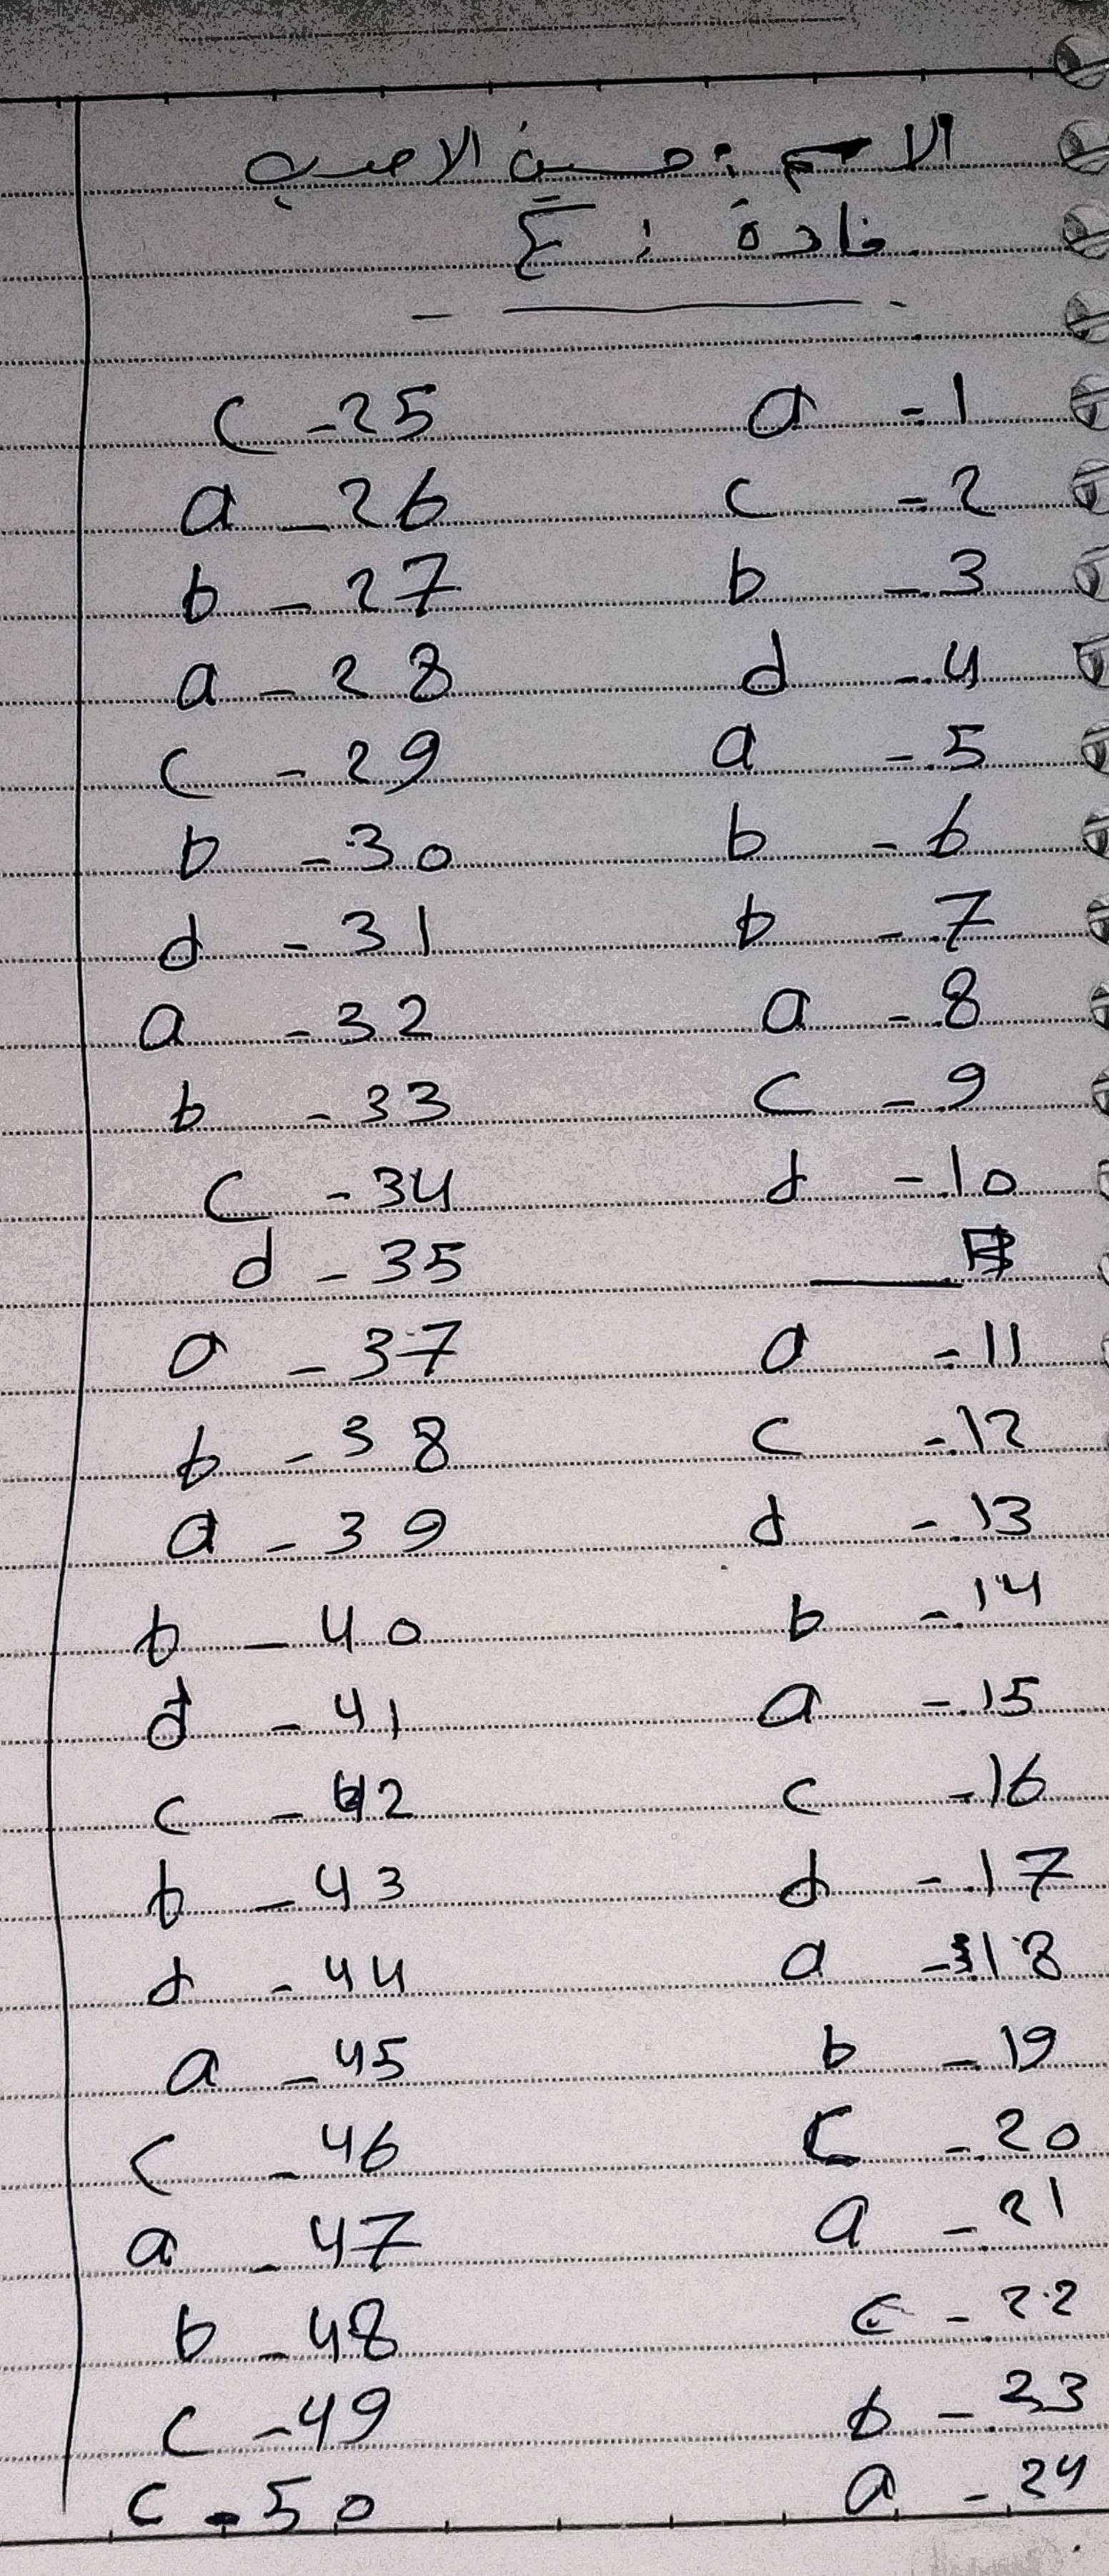 الاسم : حسين الاحدب
مادة : E
1 - a
2 - c
3 - b
4 - d
5 - a
6 - b
7 - b
8 - a
9 - c
10 - d
11 - a
12 - c
13 - d
14 - b
15 - a
16 - c
17 - d
18 - a
19 - b
20 - c
21 - a
22 - c
23 - b
24 - a
25 - c
26 - a
27 - b
28 - a
29 - c
30 - b
31 - d
32 - a
33 - b
34 - c
35 - d
37 - a
38 - b
39 - a
40 - b
41 - d
42 - c
43 - b
44 - d
45 - a
46 - c
47 - a
48 - b
49 - c
50 - c